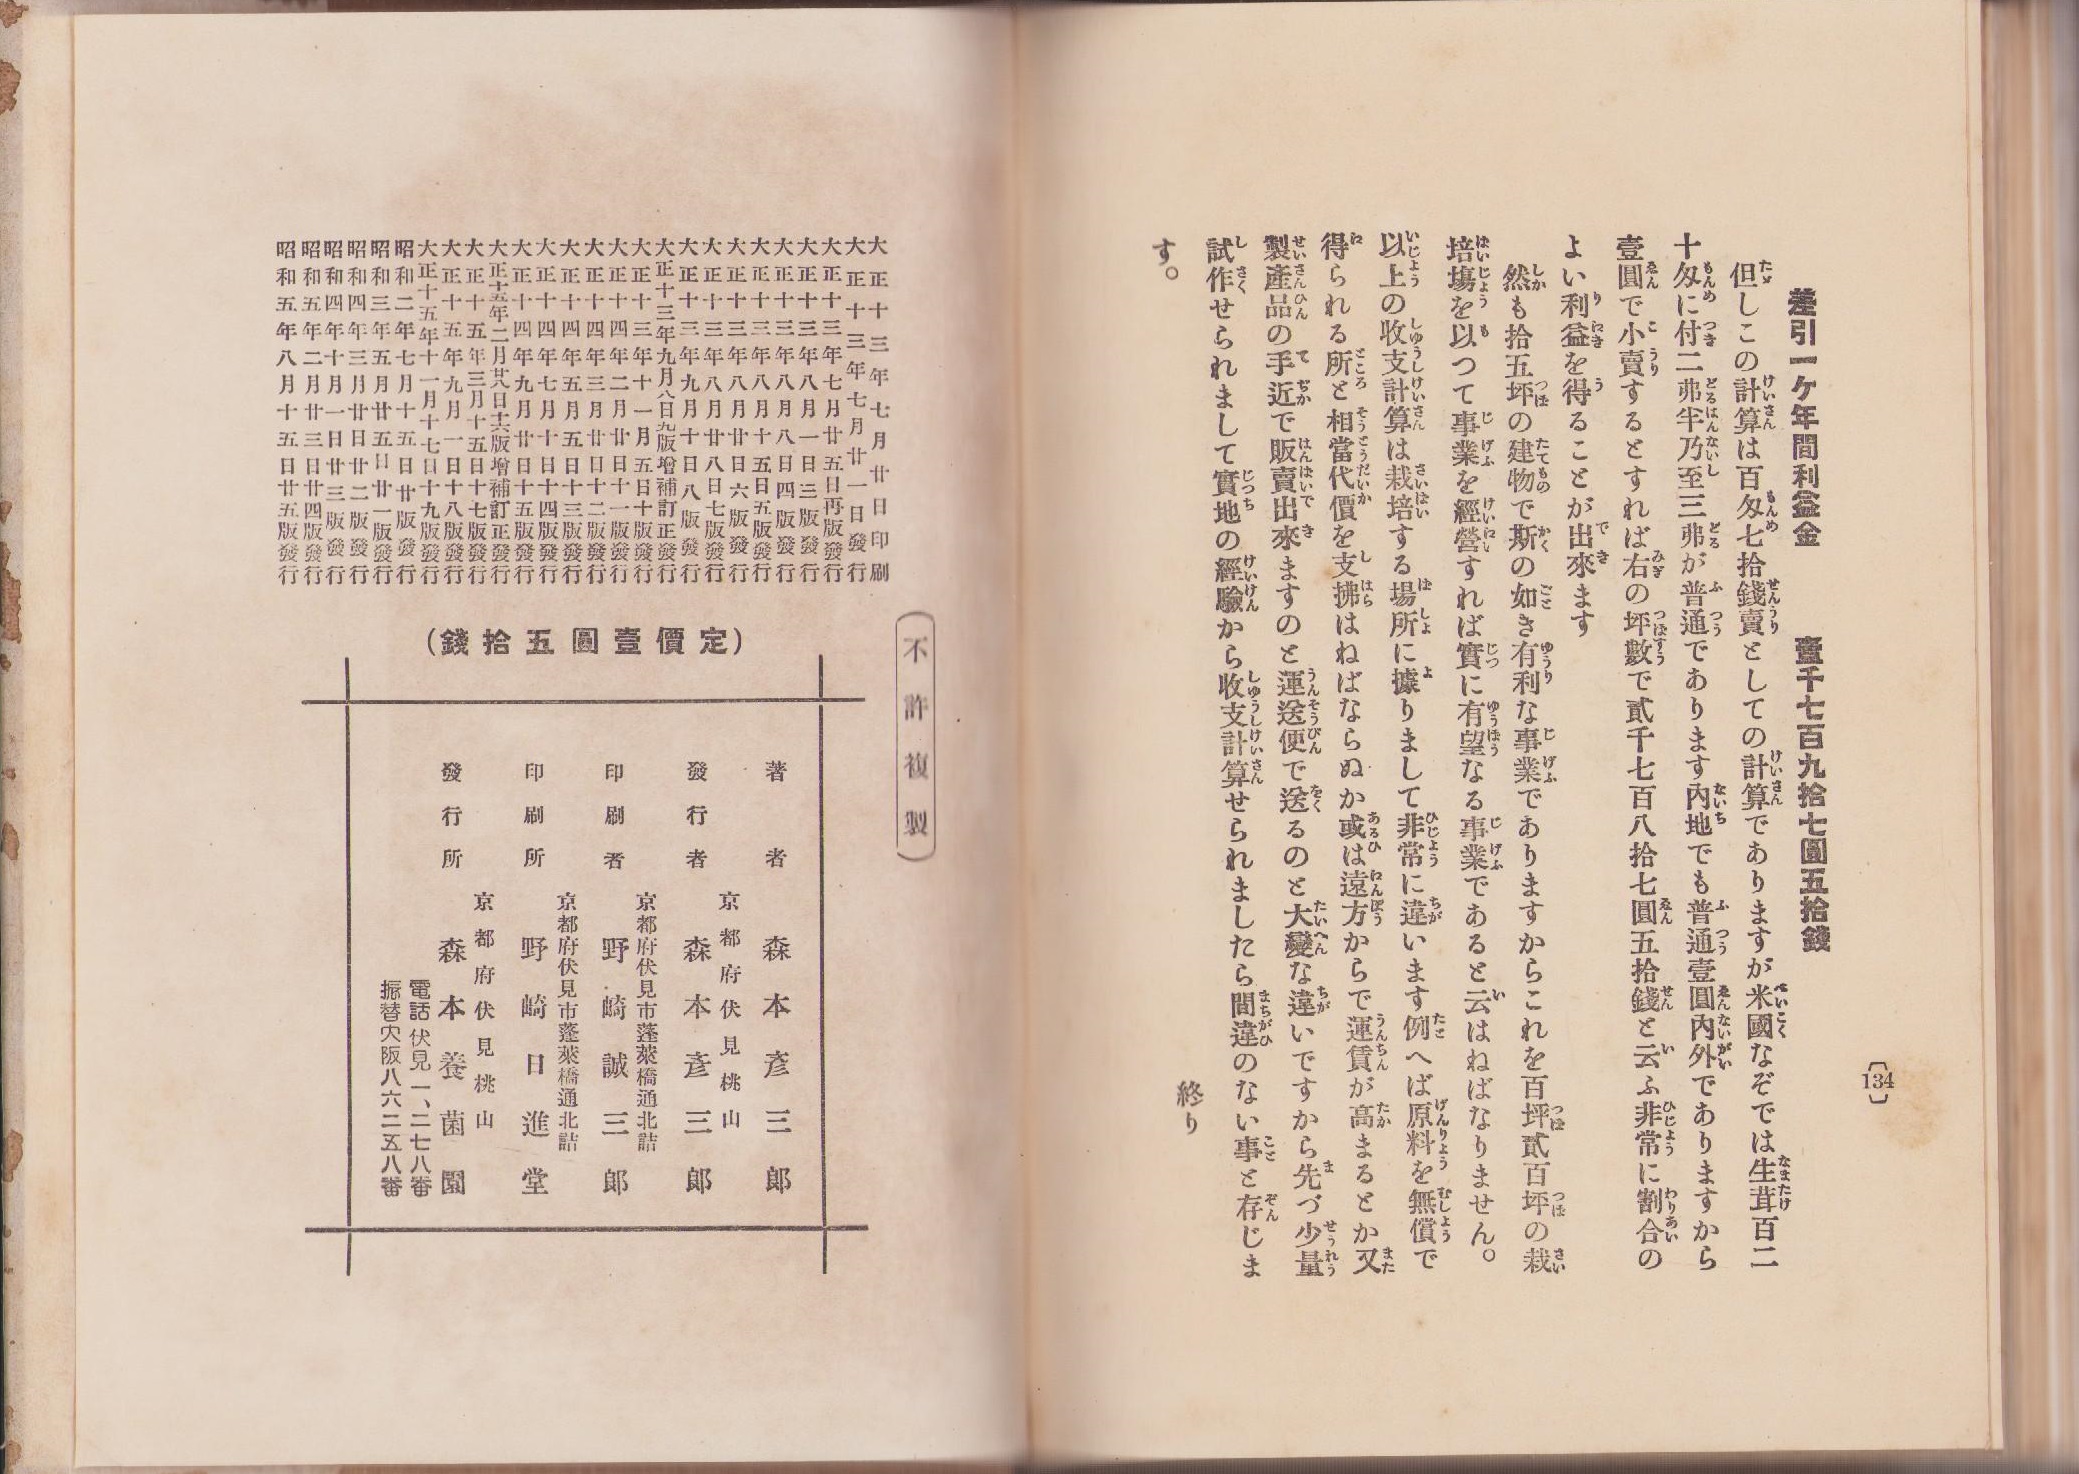 〔134〕
差引一ケ年間利益金　壹千七百九拾七圓五拾錢
但しこの計算は百匁七拾錢賣としての計算でありますが米國なぞでは生茸百二
十匁に付二弗半乃至三弗が普通であります內地でも普通壹圓內外でありますから
壹圓で小賣するとすれば右の坪數で貳千七百八拾七圓五拾錢と云ふ非常に割合の
よい利益を得ることが出來ます
然も拾五坪の建物で斯の如き有利な事業でありますからこれを百坪貳百坪の栽
培塲を以つて事業を經營すれば實に有望なる事業であると云はねばなりません。
以上の收支計算は栽培する場所に據りまして非常に違います例へば原料を無償で
得られる所と相當代價を支拂はねばならぬか或は遠方からで運賃が高まるとか又
製產品の手近で販賣出來ますのと運送便で送るのと大變な違いですから先づ少量
試作せられまして實地の經驗から收支計算せられましたら間違のない事と存じま
す。
終り
大正十三年七月廿日印刷
大正十三年七月廿一日發行
大正十三年七月廿五日再版發行
大正十三年八月一日三版發行
大正十三年八月八日四版發行
大正十三年八月十五日五版發行
大正十三年八月廿日六版發行
大正十三年八月廿八日七版發行
大正十三年九月十日八版發行
大正十三年九月八日九版增補訂正發行
大正十三年十一月五日十版發行
大正十四年二月廿日十一版發行
大正十四年三月廿日十二版發行
大正十四年五月五日十三版發行
大正十四年七月十日十四版發行
大正十四年九月廿日十五版發行
大正十五年二月廿八日十六版增補訂正發行
大正十五年三月十五日十七版發行
大正十五年九月一日十八版發行
大正十五年十一月十七日十九版發行
昭和二年七月十五日廿版發行
昭和三年五月廿五日廿一版發行
昭和四年三月廿日廿二版發行
昭和四年十月一日廿三版發行
昭和五年二月廿三日廿四版發行
昭和五年八月十五日廿五版發行
(不許複製)
(定價壹圓五拾錢)
著者　森本彥三郞
京都府伏見桃山
發行者　森本彥三郞
京都府伏見市蓬萊橋通北詰
印刷者　野崎誠三郞
京都府伏見市蓬萊橋通北詰
印刷所　野崎日進堂
京都府伏見桃山
發行所　森本養菌園
電話伏見一、二七八番
振替大阪八六二五八番